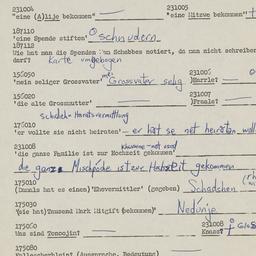 231004
"eine (A)lije bekommen"
231005
"eine Mitzwe bekommen"
187110
"eine Spende stiften" schnudern
187112
Wie hat man die Spenden am Schabbes notiert, da man nicht schreiben
darf? Karte umgebogen
156050
"mein seliger Grossvater" Grossvater selig
231006
)Harrle(
156020
"die alte Grossmutter"
231007
)Fraale(
Schidech = Heiratsvermittlung
175010
"er wollte sie nicht heiraten" – er hät se net heireten
231008
"die ganze Familie ist zur Hochzeit gekommen"
die ganze Mischpoche ist zur Hochzeit gekommen
175010
(Damals hat es einen) "Ehevermittler" (gegeben) Schadchen
175030
"sie hat)Tausend Mark Mitgift bekommen" Nedünje
175050
Was sind Tenoojin?
231008
Knass?
175080